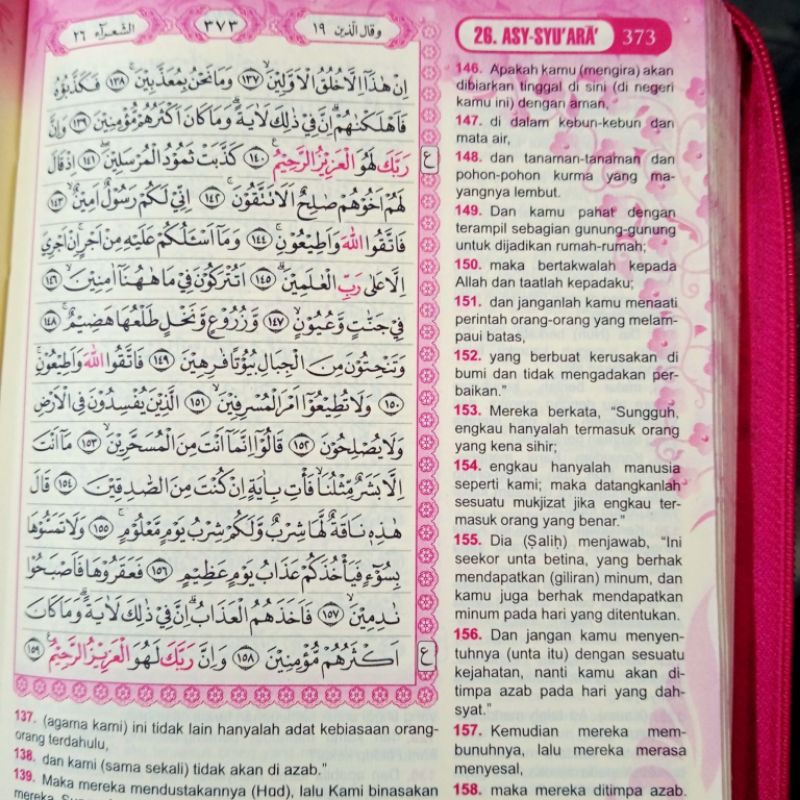 الشعرآء ٢٦
٣٧٣
وقال الذين ١٩
26. ASY-SYU'ARĀ' 373
اِنْ هٰذَآ اِلَّا خُلُقُ الْاَوَّلِيْنَ ۙ ١٣٧ وَمَا نَحْنُ بِمُعَذَّبِيْنَ ۚ ١٣٨ فَكَذَّبُوْهُ
فَاَهْلَكْنٰهُمْۗ اِنَّ فِيْ ذٰلِكَ لَاٰيَةًۗ وَمَا كَانَ اَكْثَرُهُمْ مُّؤْمِنِيْنَ ١٣٩ وَاِنَّ
رَبَّكَ لَهُوَ الْعَزِيْزُ الرَّحِيْمُ ࣖ ١٤٠ كَذَّبَتْ ثَمُوْدُ الْمُرْسَلِيْنَ ۖ ١٤١ اِذْ قَالَ
لَهُمْ اَخُوْهُمْ صٰلِحٌ اَلَا تَتَّقُوْنَ ۚ ١٤٢ اِنِّيْ لَكُمْ رَسُوْلٌ اَمِيْنٌ ۙ ١٤٣
فَاتَّقُوا اللّٰهَ وَاَطِيْعُوْنِ ۚ ١٤٤ وَمَآ اَسْـَٔلُكُمْ عَلَيْهِ مِنْ اَجْرٍۚ اِنْ اَجْرِيَ
اِلَّا عَلٰى رَبِّ الْعٰلَمِيْنَ ۗ ١٤٥ اَتُتْرَكُوْنَ فِيْ مَا هٰهُنَآ اٰمِنِيْنَ ۙ ١٤٦
فِيْ جَنّٰتٍ وَّعُيُوْنٍ ۙ ١٤٧ وَّزُرُوْعٍ وَّنَخْلٍ طَلْعُهَا هَضِيْمٌ ۚ ١٤٨
وَتَنْحِتُوْنَ مِنَ الْجِبَالِ بُيُوْتًا فٰرِهِيْنَ ١٤٩ فَاتَّقُوا اللّٰهَ وَاَطِيْعُوْنِ ۚ
١٥٠ وَلَا تُطِيْعُوْٓا اَمْرَ الْمُسْرِفِيْنَ ۙ ١٥١ الَّذِيْنَ يُفْسِدُوْنَ فِى الْاَرْضِ
وَلَا يُصْلِحُوْنَ ١٥٢ قَالُوْٓا اِنَّمَآ اَنْتَ مِنَ الْمُسَحَّرِيْنَ ۙ ١٥٣ مَآ اَنْتَ
اِلَّا بَشَرٌ مِّثْلُنَاۙ فَأْتِ بِاٰيَةٍ اِنْ كُنْتَ مِنَ الصّٰدِقِيْنَ ١٥٤ قَالَ
هٰذِهٖ نَاقَةٌ لَّهَا شِرْبٌ وَّلَكُمْ شِرْبُ يَوْمٍ مَّعْلُوْمٍ ۚ ١٥٥ وَلَا تَمَسُّوْهَا
بِسُوْۤءٍ فَيَأْخُذَكُمْ عَذَابُ يَوْمٍ عَظِيْمٍ ١٥٦ فَعَقَرُوْهَا فَاَصْبَحُوْا
نٰدِمِيْنَ ۙ ١٥٧ فَاَخَذَهُمُ الْعَذَابُۗ اِنَّ فِيْ ذٰلِكَ لَاٰيَةًۗ وَمَا كَانَ
اَكْثَرُهُمْ مُّؤْمِنِيْنَ ١٥٨ وَاِنَّ رَبَّكَ لَهُوَ الْعَزِيْزُ الرَّحِيْمُ ࣖ ١٥٩
ع
ع
137. (agama kami) ini tidak lain hanyalah adat kebiasaan orang-
orang terdahulu,
138. dan kami (sama sekali) tidak akan di azab."
139. Maka mereka mendustakannya (Hūd), lalu Kami binasakan
146. Apakah kamu (mengira) akan
dibiarkan tinggal di sini (di negeri
kamu ini) dengan aman,
147. di dalam kebun-kebun dan
mata air,
148. dan tanaman-tanaman dan
pohon-pohon kurma yang ma-
yangnya lembut.
149. Dan kamu pahat dengan
terampil sebagian gunung-gunung
untuk dijadikan rumah-rumah;
150. maka bertakwalah kepada
Allah dan taatlah kepadaku;
151. dan janganlah kamu menaati
perintah orang-orang yang melam-
paui batas,
152. yang berbuat kerusakan di
bumi dan tidak mengadakan per-
baikan."
153. Mereka berkata, "Sungguh,
engkau hanyalah termasuk orang
yang kena sihir;
154. engkau hanyalah manusia
seperti kami; maka datangkanlah
sesuatu mukjizat jika engkau ter-
masuk orang yang benar."
155. Dia (Ṣaliḥ) menjawab, "Ini
seekor unta betina, yang berhak
mendapatkan (giliran) minum, dan
kamu juga berhak mendapatkan
minum pada hari yang ditentukan.
156. Dan jangan kamu menyen-
tuhnya (unta itu) dengan sesuatu
kejahatan, nanti kamu akan di-
timpa azab pada hari yang dah-
syat."
157. Kemudian mereka mem-
bunuhnya, lalu mereka merasa
menyesal,
158. maka mereka ditimpa azab.